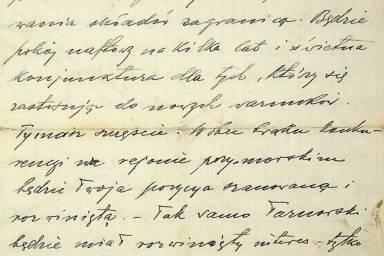 wania składów zagranicą. Będzie
pokój naftowy na kilka lat i świetna
konjunktura dla tych, którzy się
zastosują do nowych warunków.
Ty masz szczęście. Wobec braku konku-
rencji w rejonie przymorskim
będzie Twoja pozycya szanowaną i
rozwiniętą. — Tak samo Tarnowski
będzie miał rozwinięty interes - tylko